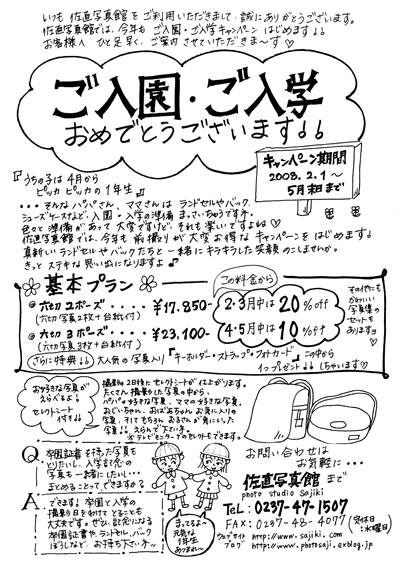 いつも 佐直写真館を ご利用いただきまして、誠にありがとうございます。
佐直写真館では、今年も ご入園・ご入学キャンペーン はじめます♪♪
お客様へ ひと足早く、ご案内させていただきま〜す♡
ご入園・ご入学
おめでとうございます♪♪
キャンペーン期間
2008.2.1〜
5月末日まで
『うちの子は4月から
ピッカピッカの1年生』
・・・そんなパパさん、ママさんは ランドセルやバック、
シューズケースなど、入園・入学の準備まっさいちゅうですネ。
色々と準備があって大変ですけど、それも楽しいですよね♡
佐直写真館では、今年も 前撮りが大変お得なキャンペーンをはじめます♪
真新しいランドセルやバックたちと一緒にキラキラした笑顔のこしませんか。
きっと ステキな思い出になりますよ♪
基本プラン
この料金から
@ 六切 2ポーズ・・・・ ¥17,850-
(六切写真2枚+台紙付)
@ 六切 3ポーズ・・・・ ¥23,100-
(六切写真3枚+台紙付)
2・3月中は 20%off
4・5月中は 10%off
その他にも
かわいい
写真集の
セットも
あります♡
さらに特典♪♪ 大人気の写真入り『キーホルダー・ストラップ・フォトカード』この中から
1つプレゼント♪♪しちゃいます♡
お好きな写真が
えらべるよ!
セレクトシート
付き♪♪
撮影後2日後にセレクトシートが仕上がります。
たくさん撮影した写真の中から、
パパの好きな写真、ママの好きな写真、
おじいちゃん、おばあちゃんお気に入りの
写真、そしてもちろんお子さんが気に入った
写真♪♪えらんで下さいネ。
※テレビモニターでのセレクトもできます。
Q 卒園証書を持った写真も
とりたいし、入学記念の
写真も一緒にしたい・・・
まとめることってできますか?
A できます!卒園と入学の
撮影を日をわけてとることも
大丈夫です。ぜひ、記念になる
卒園証書や、ランドセル、バック
ぼうしなど、お持ち下さいネッ
まってるよ〜
元気な
1年生
あつまれ〜
お問い合わせは
お気軽に・・・
佐直写真館 まで
photo studio Sajiki
TEL: 0237-47-1507
FAX: 0237-48-4077 (定休日:水曜日)
ウェブサイト http://www.sajiki.com
ブログ http://www.photosaji.exblog.jp